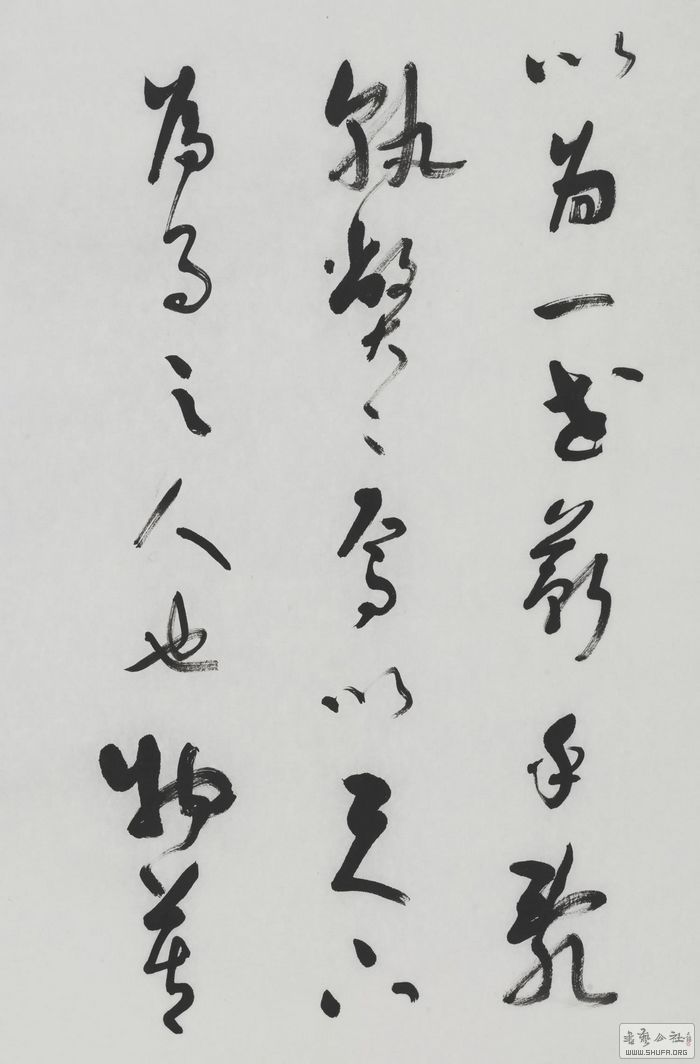 以為一世蘄乎亂
孰弊々焉以天下
為事之人也物莫
書藝公社
WWW.SHUFA.ORG